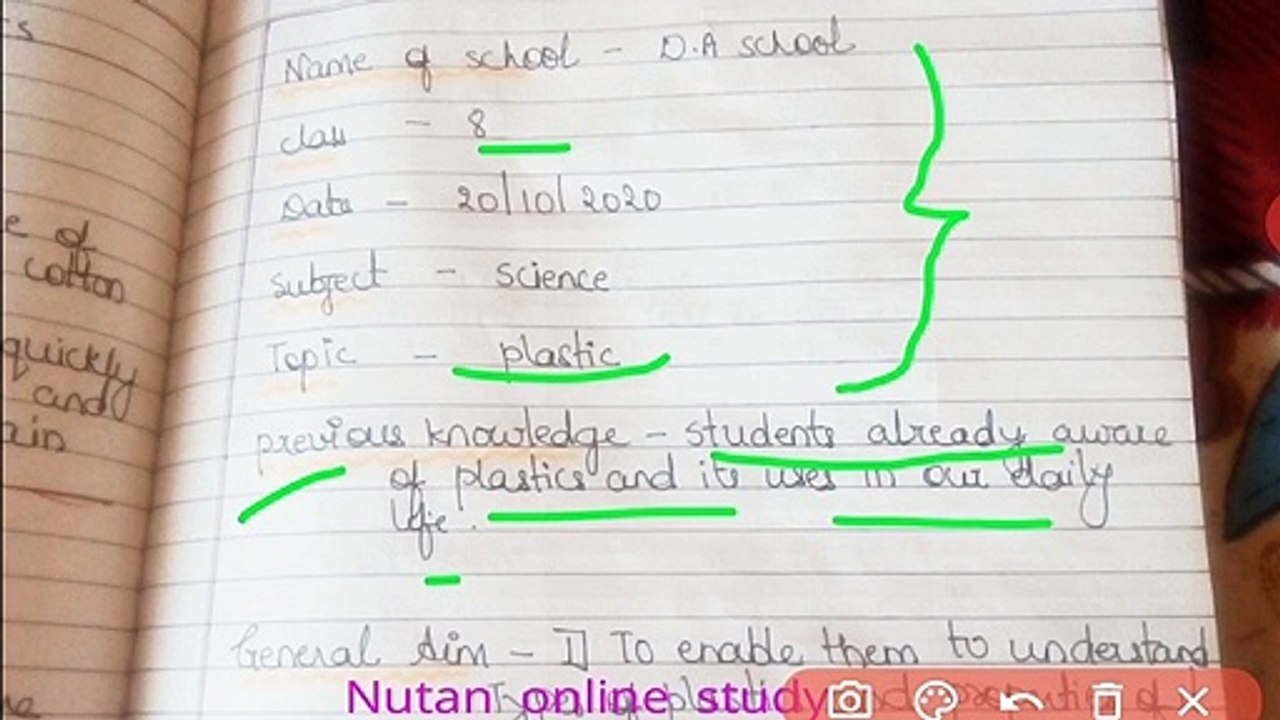 s
e of
cotton
quickly
and
ain
Name of school - D.A school
class - 8
Date - 20/10/2020
Subject - science
Topic - plastic
previous knowledge - students already aware
of plastics and its uses in our daily
life.
General Aim - I] To enable them to understand
Nutan online study